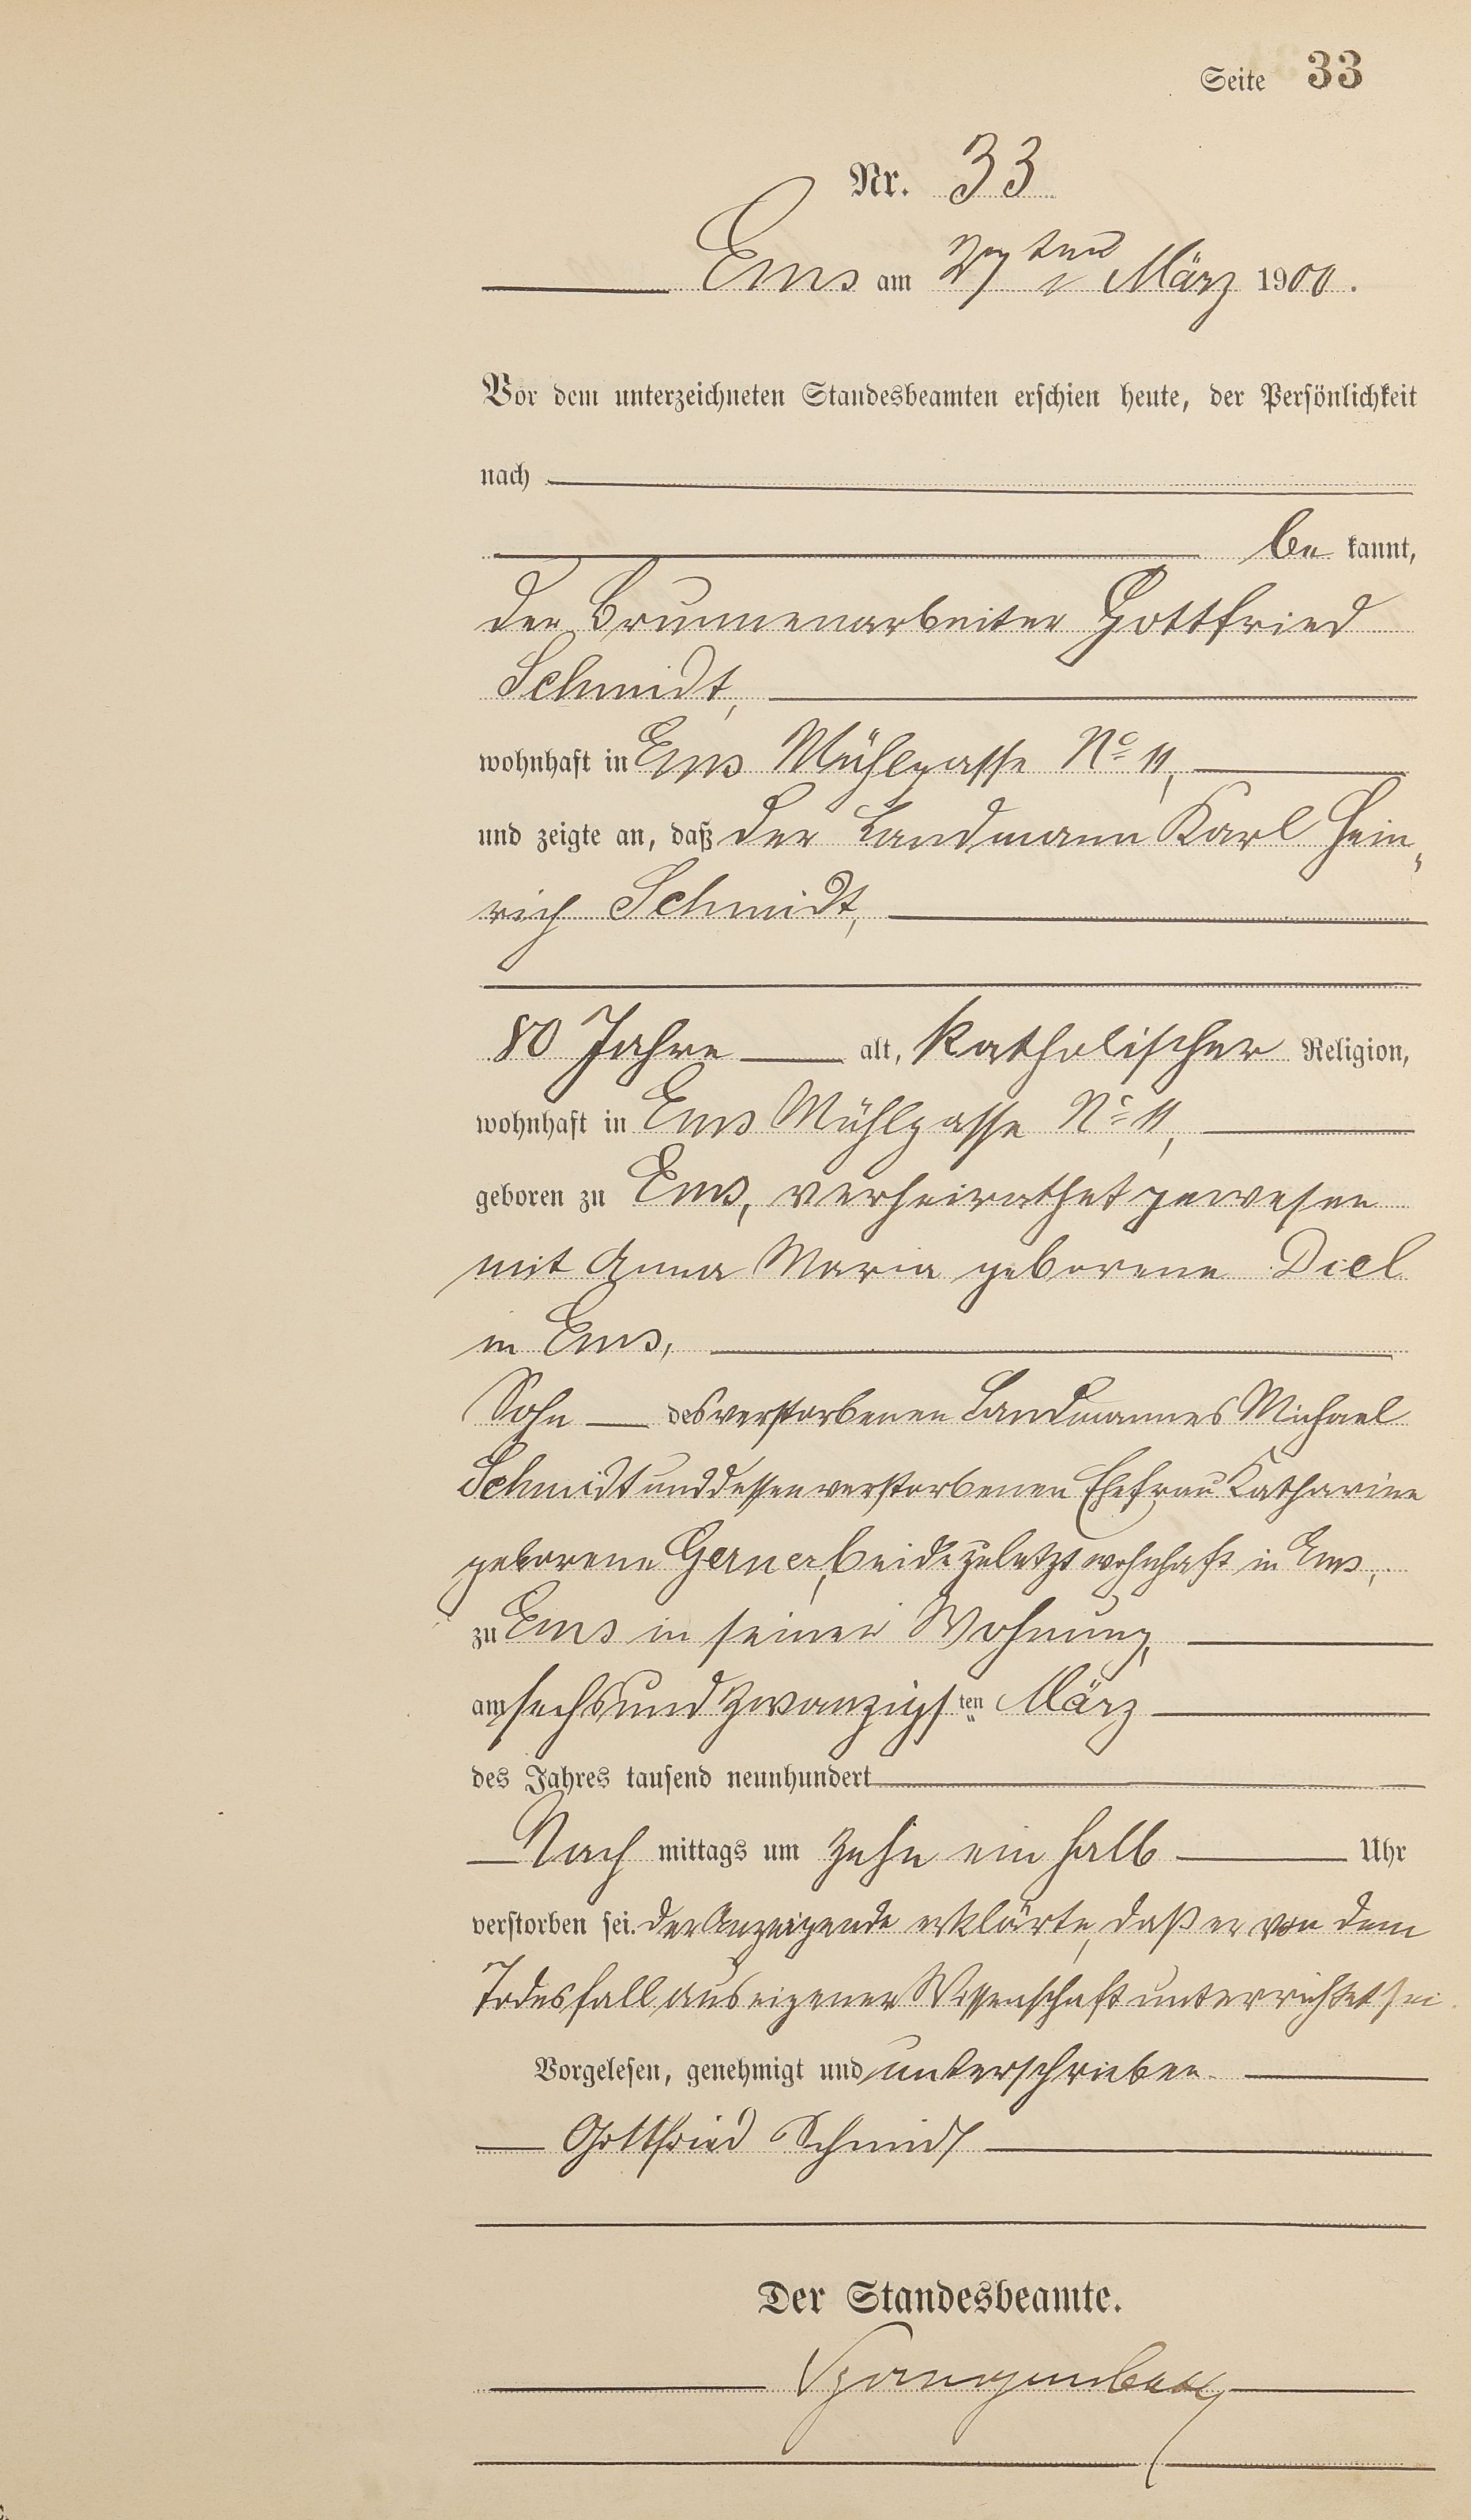 Seite 33
Nr. 33
Ems am 27ten März 1900.
Vor dem unterzeichneten Standesbeamten erschien heute, der Persönlichkeit
nach
be kannt,
der Brunnenarbeiter Gottfried
Schmidt,
wohnhaft in Ems Mühlgasse No 11,
und zeigte an, daß der Landmann Karl Hein„
rich Schmidt,
80 Jahre alt, katholischer Religion,
wohnhaft in Ems Mühlgasse No 11,
geboren zu Ems, verheirathet gewesen
mit Anna Maria geborene Diel
in Ems,
Sohn des verstorbenen Landmannes Michael
Schmidt und dessen verstorbenen Ehefrau Katharine
geborene Gerner, beide zuletzt wohnhaft in Ems,
zu Ems in seiner Wohnung,
am sechsundzwanzigsten März
des Jahres tausend neunhundert
Nach mittags um zehn ein halb Uhr
verstorben sei. Der Anzeigende erklärte, daß er von dem
Todesfall aus eigener Wissenschaft unterrichtet sei.
Vorgelesen, genehmigt und unterschrieben.
Gottfried Schmidt
Der Standesbeamte.